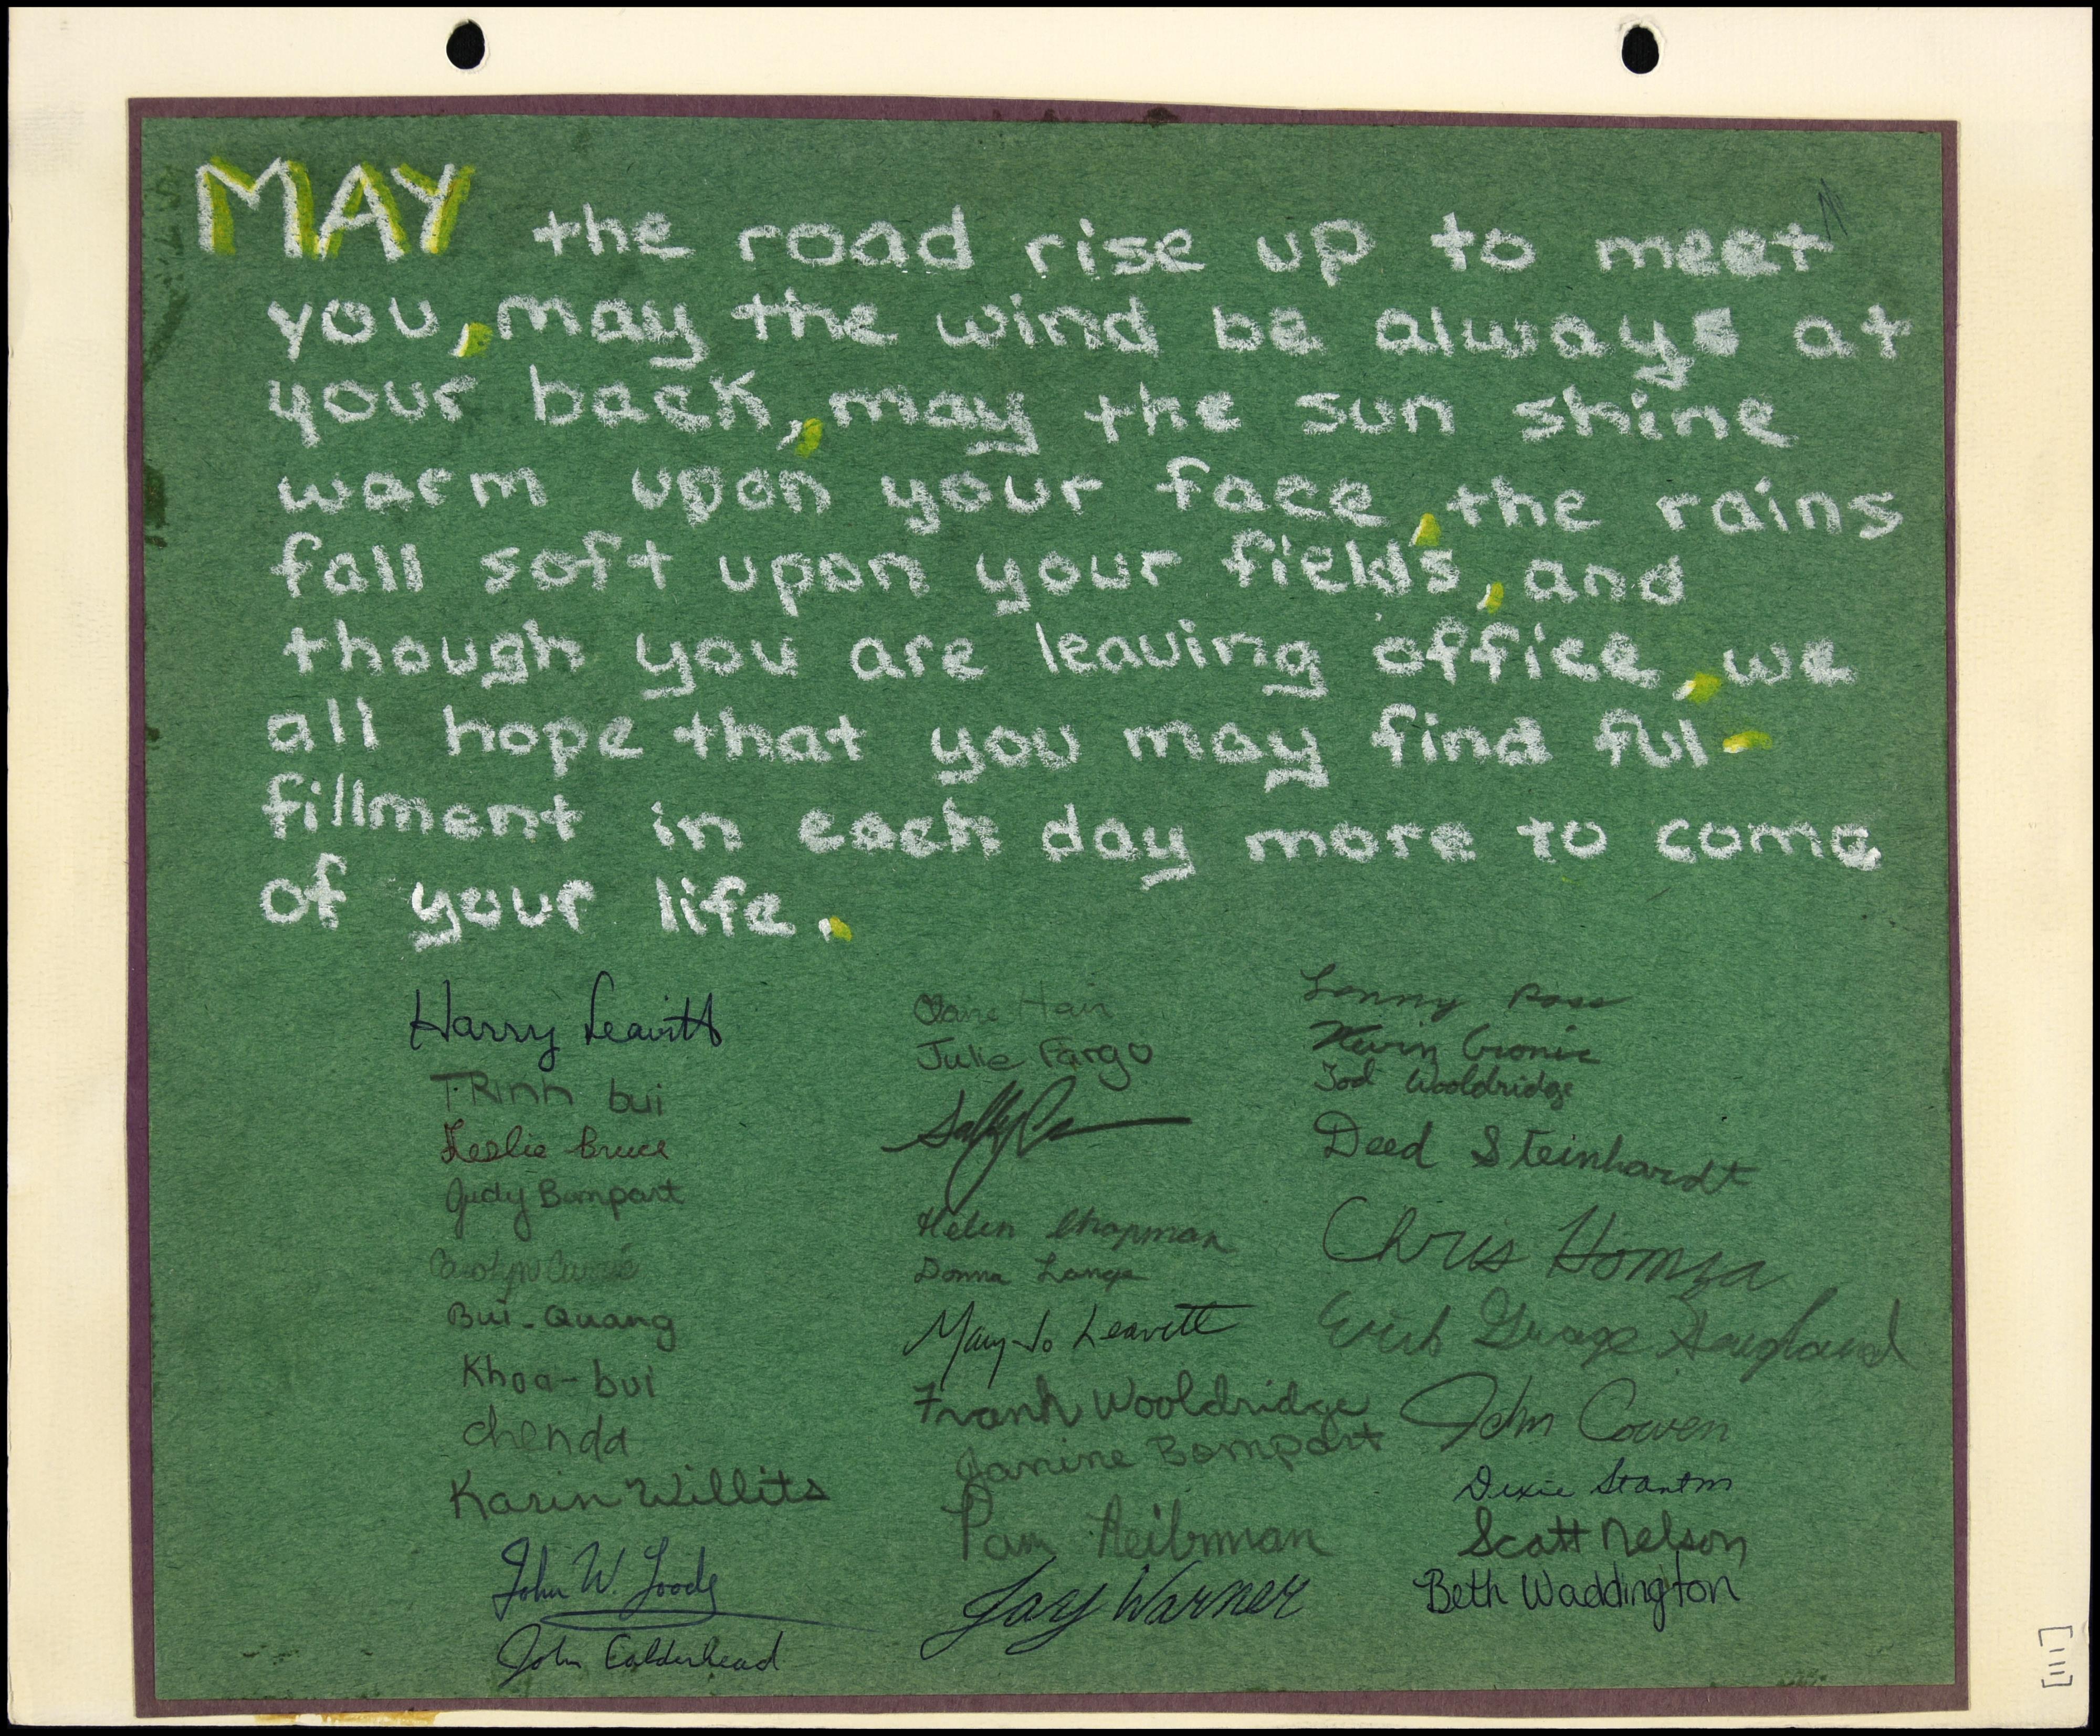 MAY the road rise up to meet
you, may the wind be always at
your back, may the sun shine
warm upon your face, the rains
fall soft upon your fields, and
though you are leaving office, we
all hope that you may find ful-
fillment in each day more to come
of your life.
Harry Leavitt
TRinh bui
Leslie Bruce
Judy Bompart
Carolyn Currie
Bui-Quang
Khoa-bui
chenda
Karin Willits
John W.
John Calderhead
Hair
Julie Fargo
Sally
Helen Chapman
Donna Lange
Mary Jo Leavitt
Frank Wooldridge
Janine Bompart
Pam Heibman
Jay Warner
Lenny Ross
Kevin Cronic
Tod Wooldridge
Deed Steinhardt
Chris Homza
George
John Cowen
Dixie Stanton
Scott Nelson
Beth Waddington
[111]